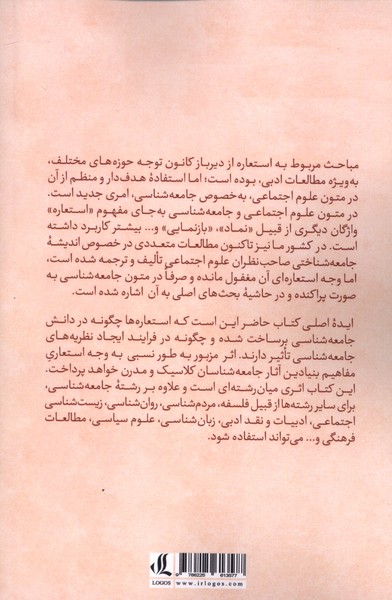 مباحث مربوط به استعاره از دیرباز کانون توجه حوزه‌های مختلف،
به‌ویژه مطالعات ادبی، بوده است؛ اما استفادهٔ هدف‌دار و منظم از آن
در متون علوم اجتماعی، به‌خصوص جامعه‌شناسی، امری جدید است.
در متون علوم اجتماعی و جامعه‌شناسی به‌جای مفهوم «استعاره»
واژگان دیگری از قبیل «نماد»، «بازنمایی» و... بیشتر کاربرد داشته
است. در کشور ما نیز تاکنون مطالعات متعددی در خصوص اندیشهٔ
جامعه‌شناختی صاحب‌نظران علوم اجتماعی تألیف و ترجمه شده است،
اما وجه استعاره‌ای آن مغفول مانده و صرفاً در متون جامعه‌شناسی به
صورت پراکنده و در حاشیهٔ بحث‌های اصلی به آن اشاره شده است.
ایدهٔ اصلی کتاب حاضر این است که استعاره‌ها چگونه در دانش
جامعه‌شناسی برساخت شده و چگونه در فرایند ایجاد نظریه‌های
جامعه‌شناسی تأثیر دارند. اثر مزبور به طور نسبی به وجه استعاریِ
مفاهیم بنیادین آثار جامعه‌شناسان کلاسیک و مدرن خواهد پرداخت.
این کتاب اثری میان‌رشته‌ای است و علاوه بر رشتهٔ جامعه‌شناسی،
برای سایر رشته‌ها از قبیل فلسفه، مردم‌شناسی، روان‌شناسی، زیست‌شناسی
اجتماعی، ادبیات و نقد ادبی، زبان‌شناسی، علوم سیاسی، مطالعات
فرهنگی و... می‌تواند استفاده شود.
LOGOS
www.irlogos.com
9 786226 613577